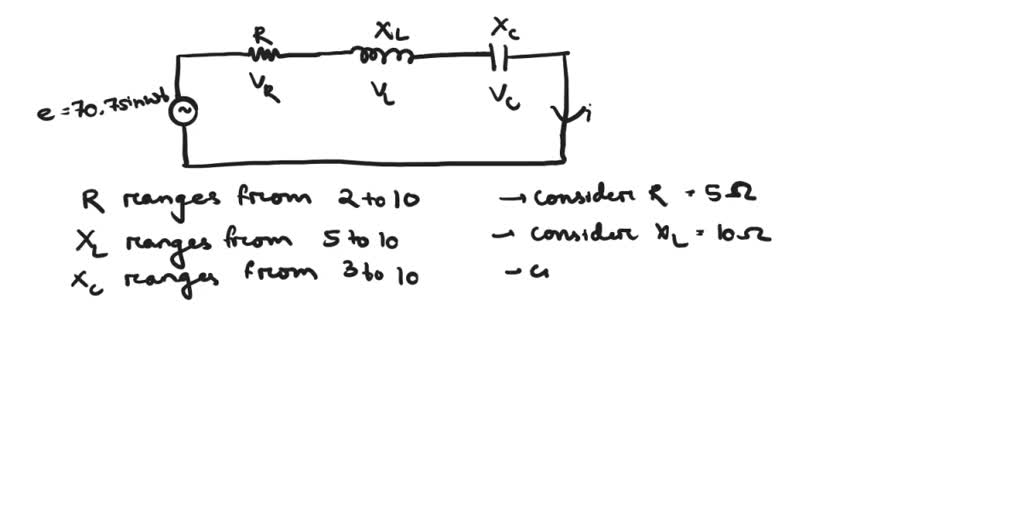 R X_L X_C
V_R V_L V_C
e = 70.7 sin wt ~ i
R ranges from 2 to 10 → consider R = 5Ω
X_L ranges from 5 to 10 → consider X_L = 10Ω
X_C ranges from 3 to 10 →